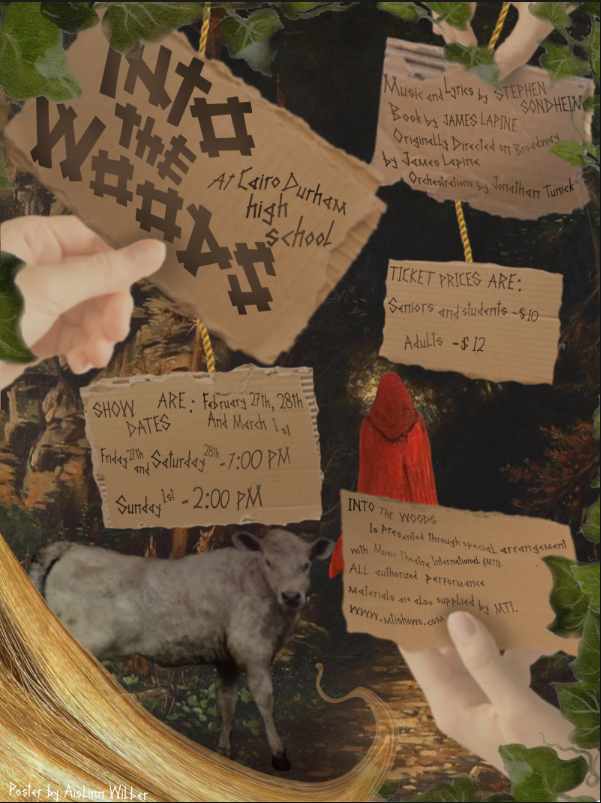 INTO
THE
WOODS
At Cairo Durham
high
school
Music and Lyrics by STEPHEN
SONDHEIM
Book by JAMES LAPINE
Originally Directed on Broadway
by James Lapine
Orchestrations by Jonathan Tunick
TICKET PRICES ARE:
Seniors and students -$10
Adults -$12
SHOW ARE: February 27th, 28th
DATES And March 1st
Friday 27th and Saturday 28th -7:00 PM
Sunday 1st - 2:00 PM
INTO THE WOODS
Is presented through special arrangement
with Music Theatre International (MTI).
ALL authorized performance
materials are also supplied by MTI.
www.mtishows.com
Poster by Aislinn Wilber